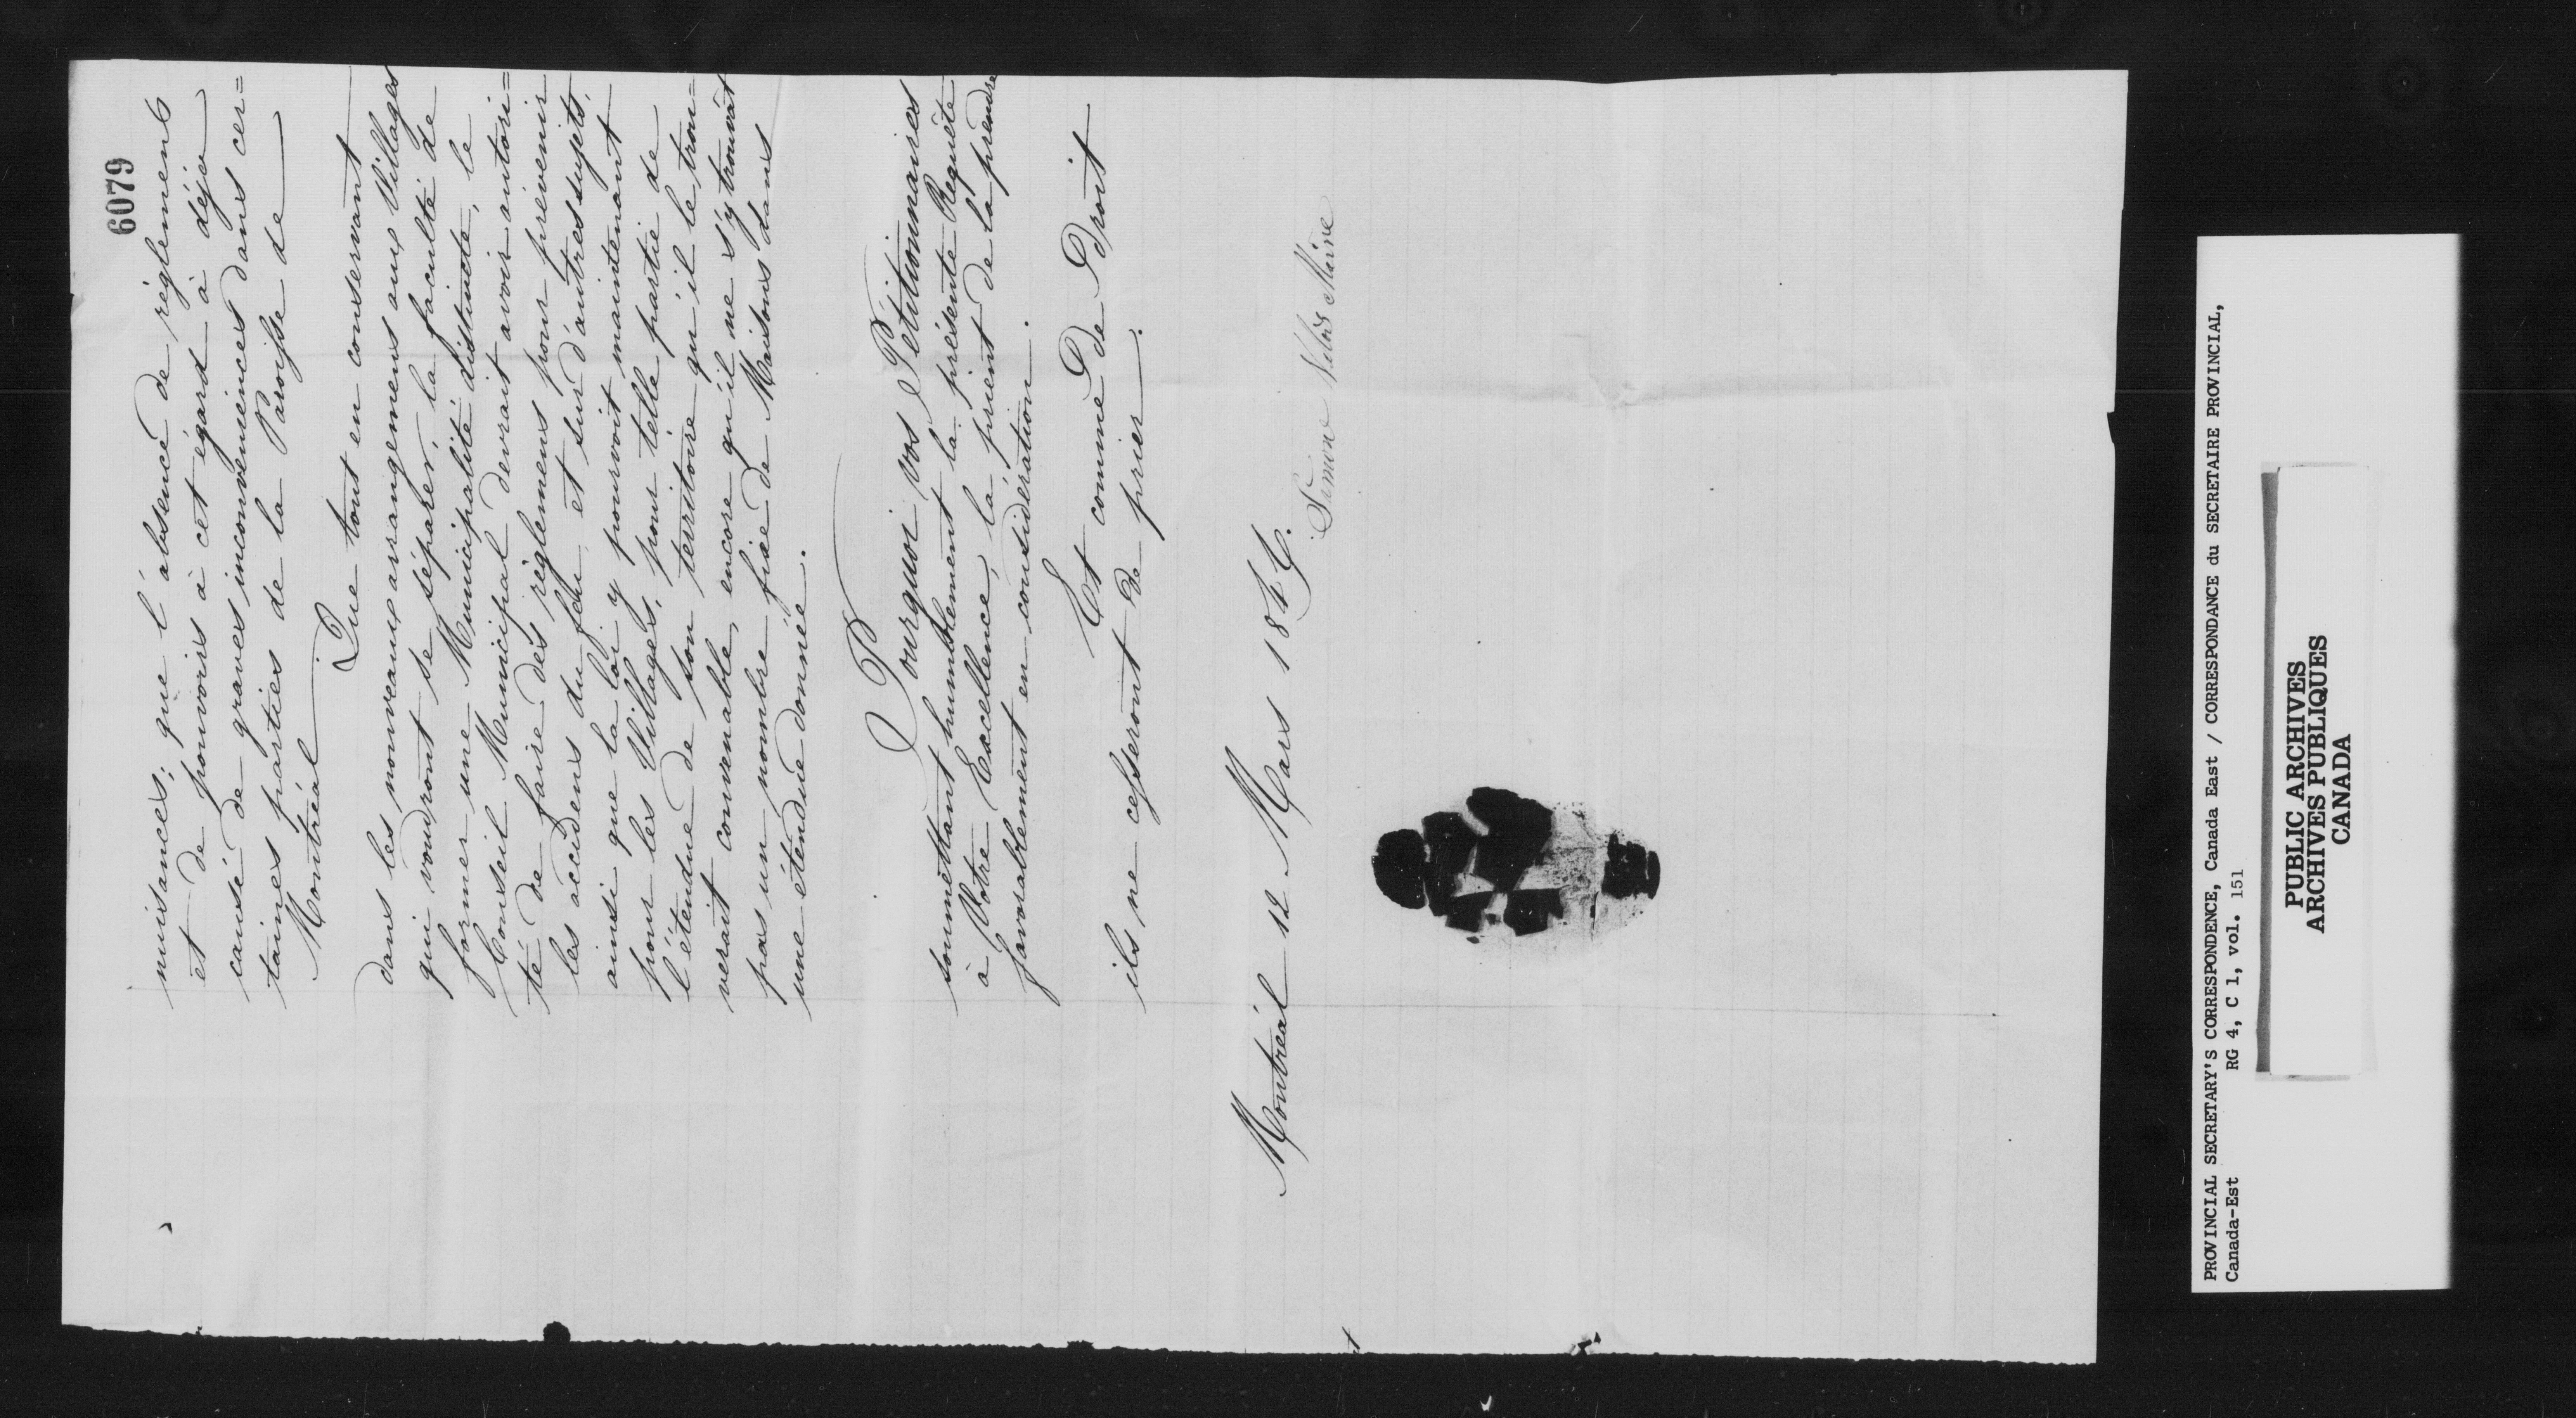 6079
nuisances; que l'absence de réglemens
et de pourvoirs à cet égard à déja
causé de graves inconveniences dans cer=
taines parties de la Paroisse de
Montréal
Que tout en conservant
dans les nouveaux arrangemens aux Villages
qui voudront se séparer, la faculté de
former une Municipalité distincte, le
Conseil Municipal devrait avoir autori=
té de faire des réglemens pour prévenir
les accidens du feu et sur d'autres sujets,
ainsi que la loi y pourvoit maintenant
pour les Villages, pour telle partie de
l'étendue de son territoire qu'il le trou=
verait convenable, encore qu'il ne s'y trouvat
pas un nombre fixe de Maisons dans
une étendue donnée.
Pourquoi vos Pétitionnaires
soumettant humblement la présente Requête
à Votre Excellence, la prient de la prendre
favorablement en considération.
Et comme de Droit
ils ne cesseront de prier.
Montréal 12 Mars 1846.
Simon Maire
PROVINCIAL SECRETARY'S CORRESPONDENCE, Canada East / CORRESPONDANCE du SECRETAIRE PROVINCIAL,
Canada-Est RG 4, C 1, vol. 151
PUBLIC ARCHIVES
ARCHIVES PUBLIQUES
CANADA